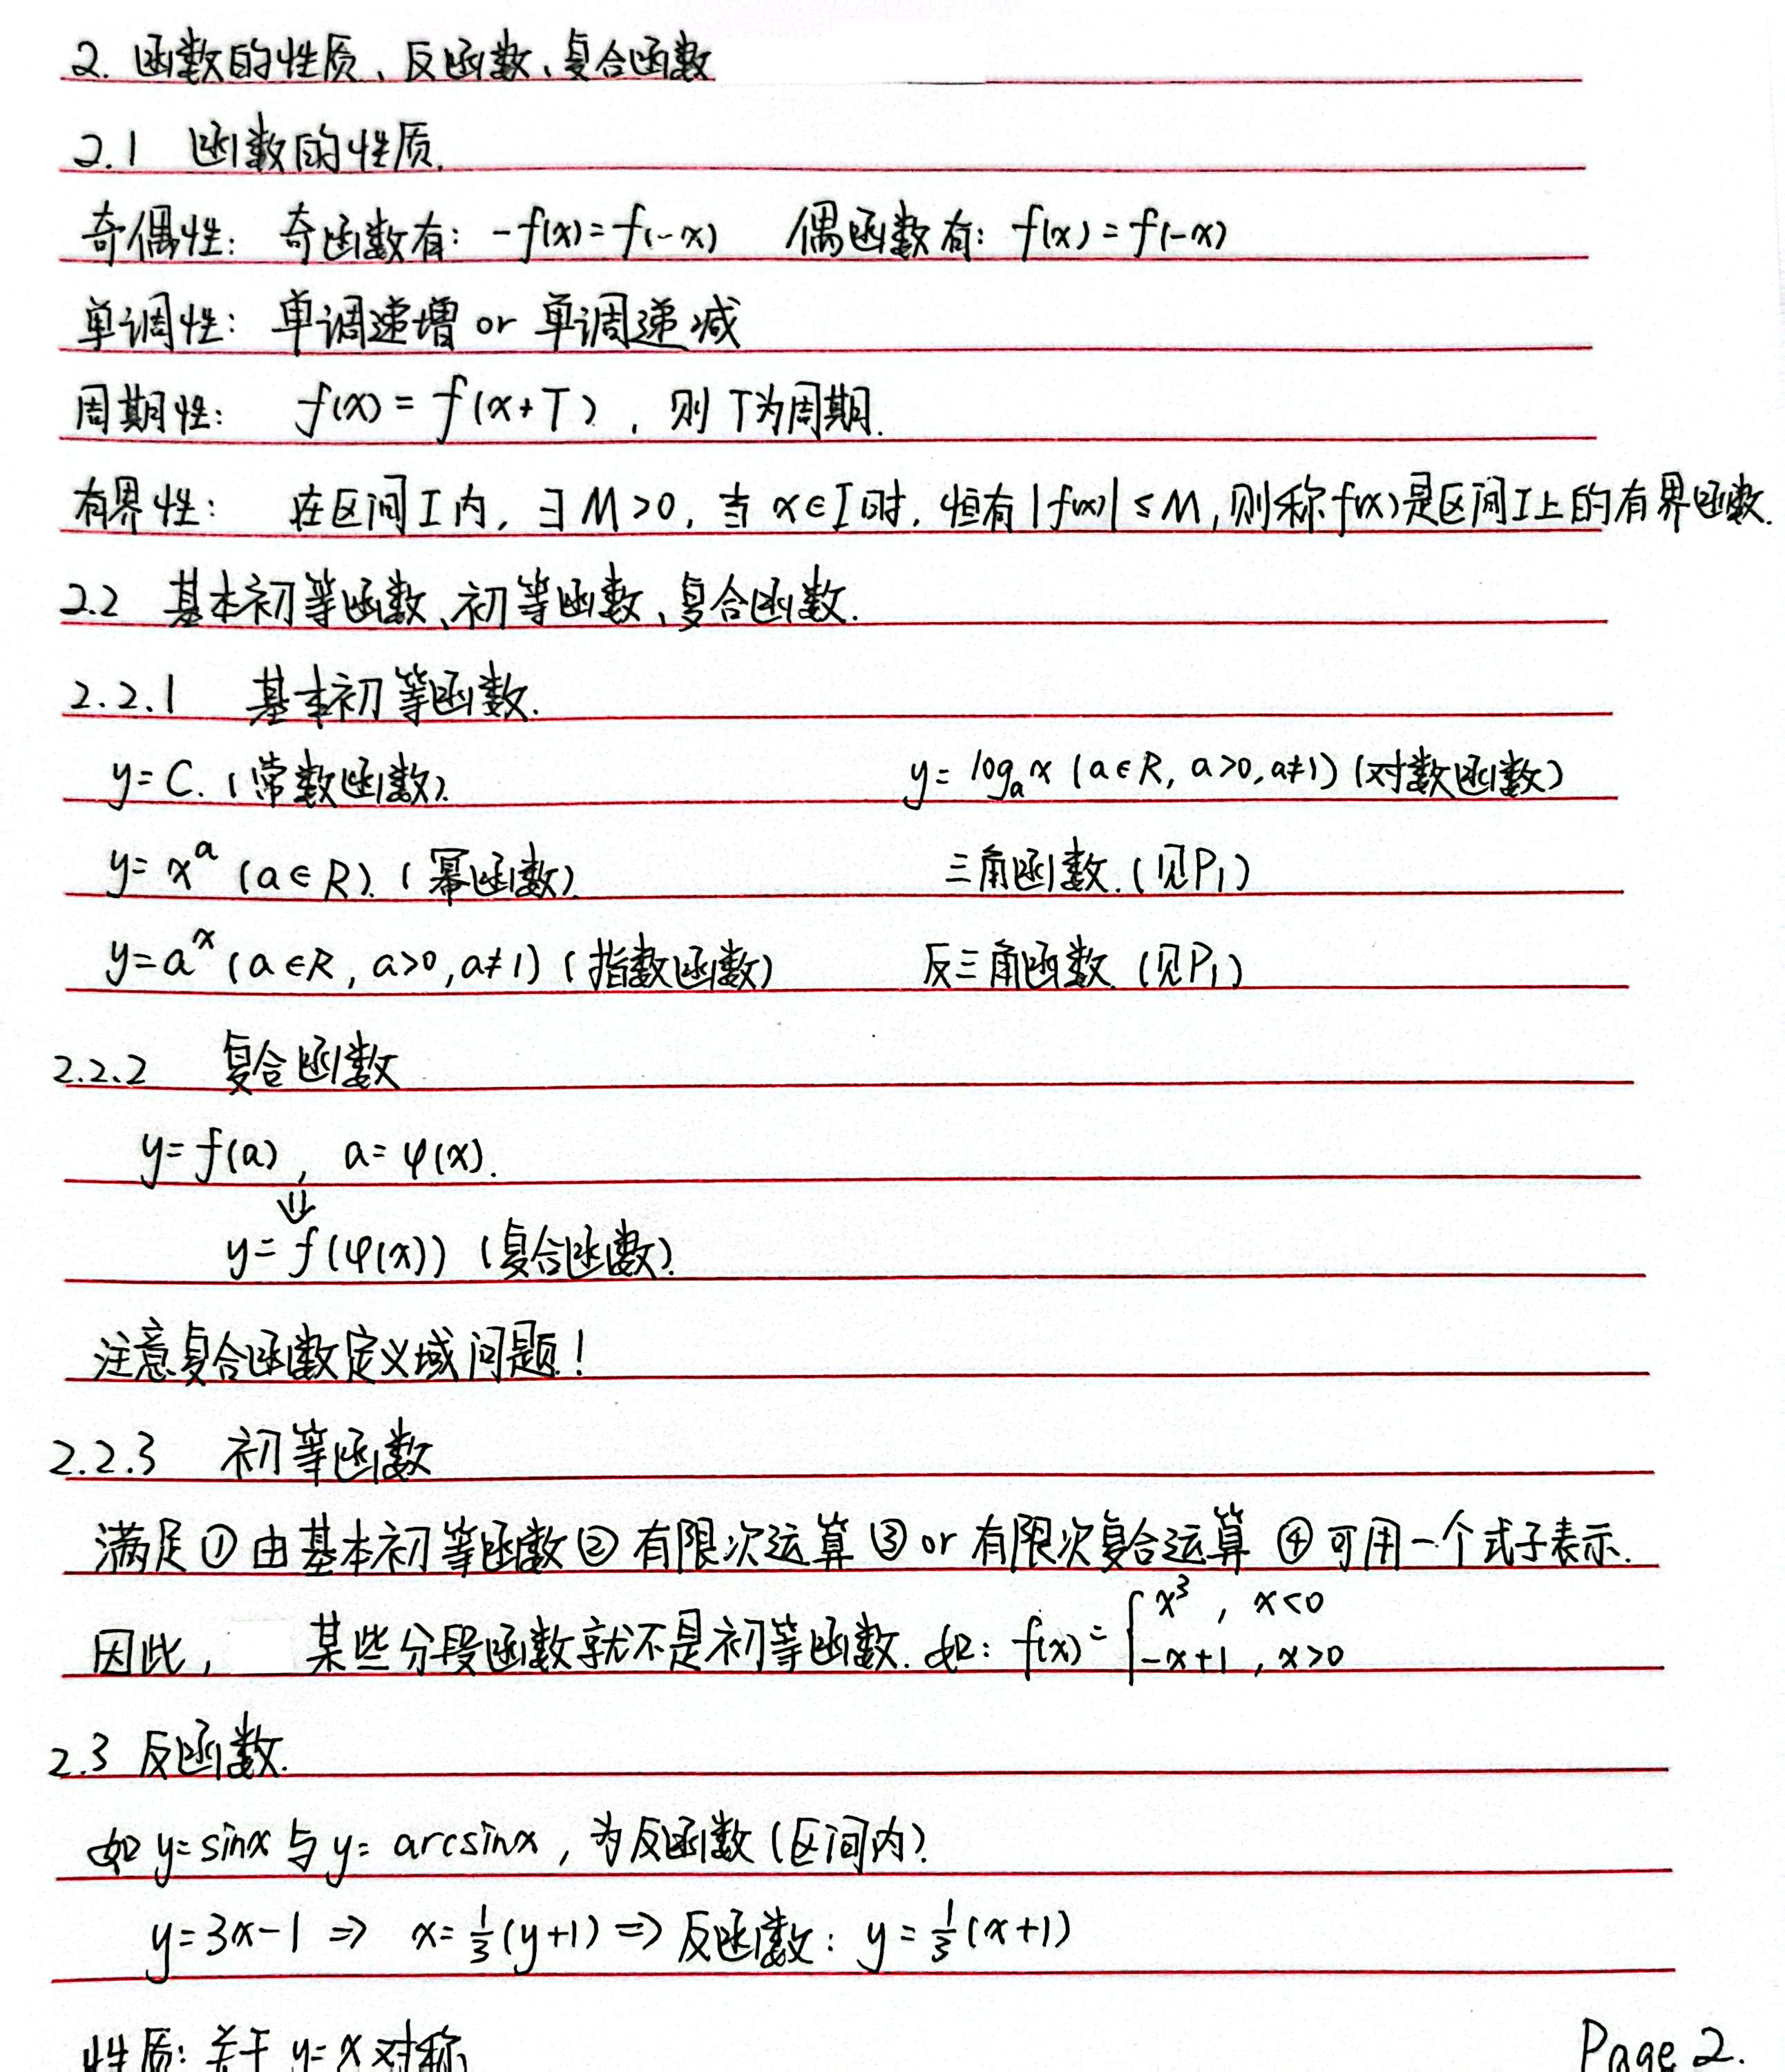 2. 函数的性质、反函数、复合函数
2.1 函数的性质.
奇偶性: 奇函数有: -f(x)=f(-x) 偶函数有: f(x)=f(-x)
单调性: 单调递增 or 单调递减
周期性: f(x)=f(x+T), 则T为周期.
有界性: 在区间I内, ∃M>0, 当x∈I时, 恒有|f(x)|≤M, 则称f(x)是区间I上的有界函数.
2.2 基本初等函数、初等函数、复合函数.
2.2.1 基本初等函数.
y=C. (常数函数). y=logₐx (a∈R, a>0, a≠1) (对数函数)
y=xᵃ (a∈R). (幂函数). 三角函数. (见P₁)
y=aˣ (a∈R, a>0, a≠1) (指数函数) 反三角函数. (见P₁)
2.2.2 复合函数
y=f(a), a=φ(x).
⇓
y=f(φ(x)) (复合函数).
注意复合函数定义域问题!
2.2.3 初等函数
满足①由基本初等函数②有限次运算③or有限次复合运算 ④可用一个式子表示.
因此, 某些分段函数就不是初等函数. 如: f(x)={x³, x<0
-x+1, x>0
2.3 反函数.
如y=sinx与y=arcsinx, 为反函数(区间内).
y=3x-1 ⇒ x=1/3(y+1) ⇒ 反函数: y=1/3(x+1)
性质: 关于y=x对称
Page 2.